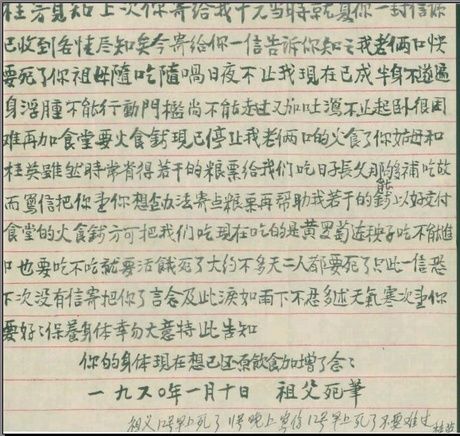 桂芳見知上次你寄給我十元当時就寫你一封信你
已收到各情尽知矣今寄給你一信告訴你知之我老俩口快
要死了你祖母隨吃隨喝日夜不止我現在已成半身不遂遍
身浮腫不能行動門檻尚不能走过又加吐瀉不止起卧很困
难再加食堂要火食鈣現已停止我老俩口的火食了你姑母和
桂英雖然時常肯得若干的粮票給我們吃日子長久那能够補吃故
而寫信把你垂你想办法寄点粮票再帮助我若干的鈣以好交付
食堂的火食鈣方可把我們吃現在吃的是黄罗蔔连秧子吃不能進
口也要吃不吃就要活餓死了大約不多天二人都要死了只此一信恐
下次没有信寄把你了言念及此淚如雨下不忍多述天氣寒次垂你
要好々保養身体幸勿大意特此告知
你的身体現在想已还原飲食加增了念々
一九六〇年一月十日 祖父死筆
祖父12号早上死了 11号晚上寫信12号早上死了不要难过